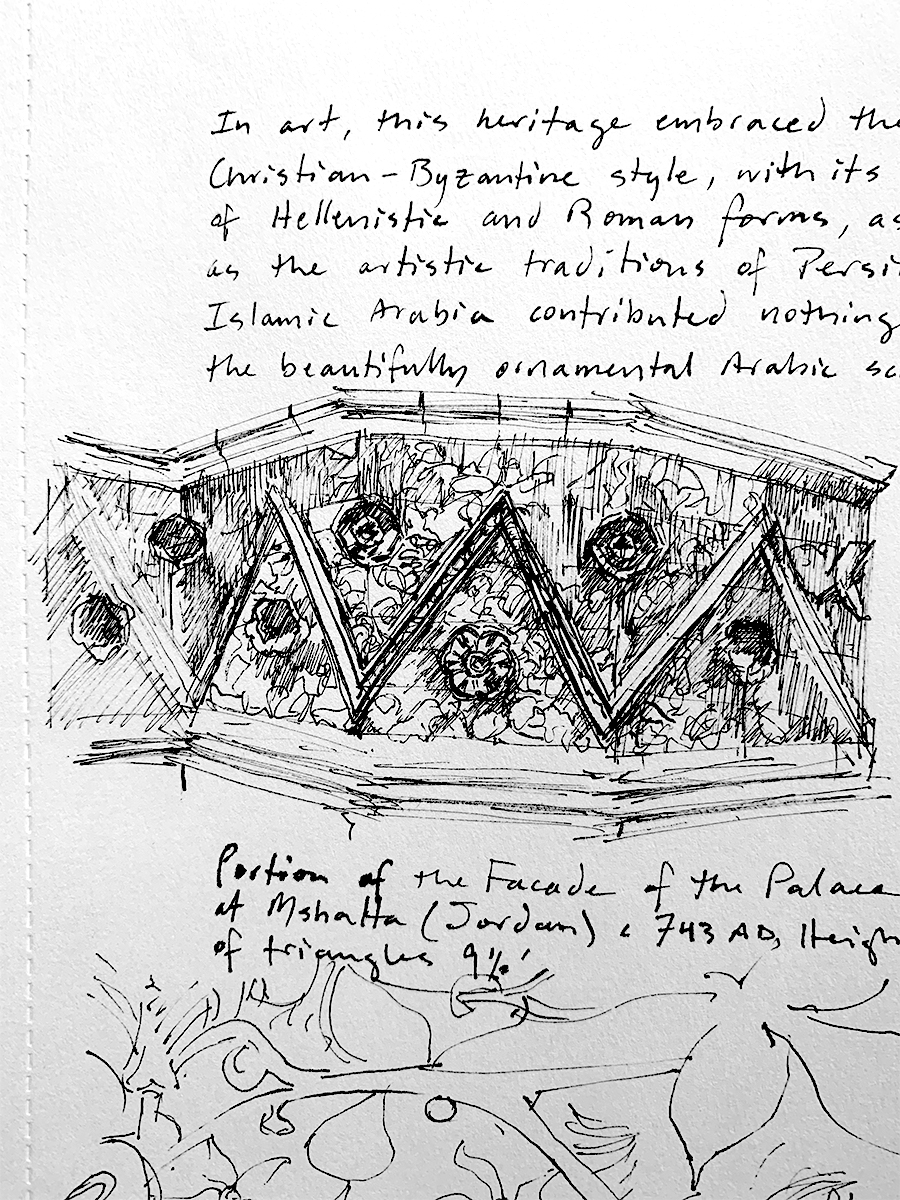 In art, this heritage embraced the
Christian-Byzantine style, with its
of Hellenistic and Roman forms, as
as the artistic traditions of Persi
Islamic Arabia contributed nothing
the beautifully ornamental Arabic sc
Portion of the Facade of the Palace
at Mshatta (Jordan) c 743 AD, Heigh
of triangles 9½'